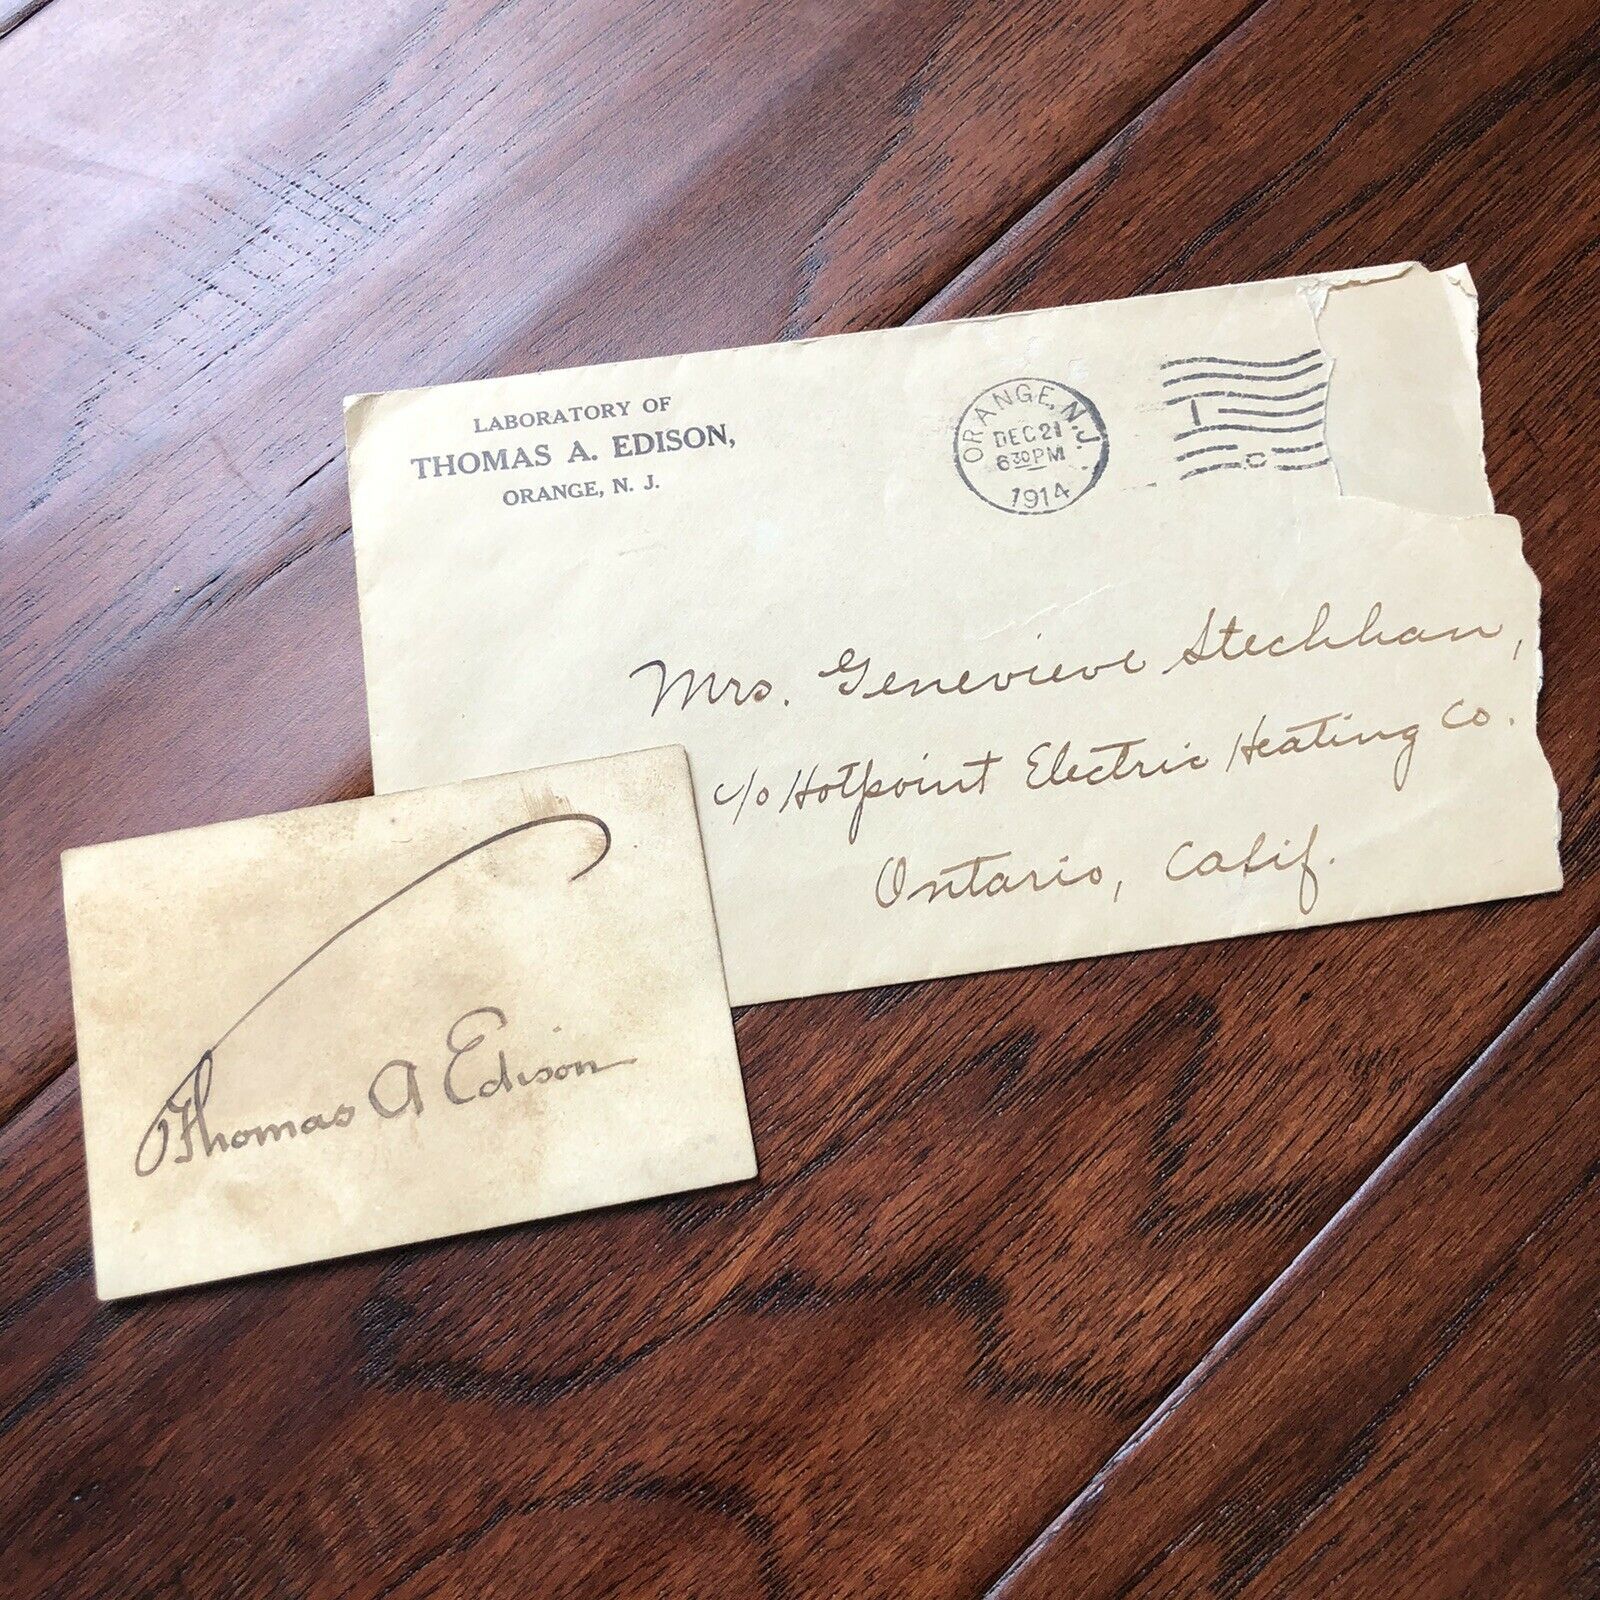 LABORATORY OF
THOMAS A. EDISON,
ORANGE, N. J.
ORANGE, N.J.
DEC 21
6 30 PM
1914
Mrs. Genevieve Stechhan,
c/o Hotpoint Electric Heating Co.
Ontario, Calif.
Thomas A Edison